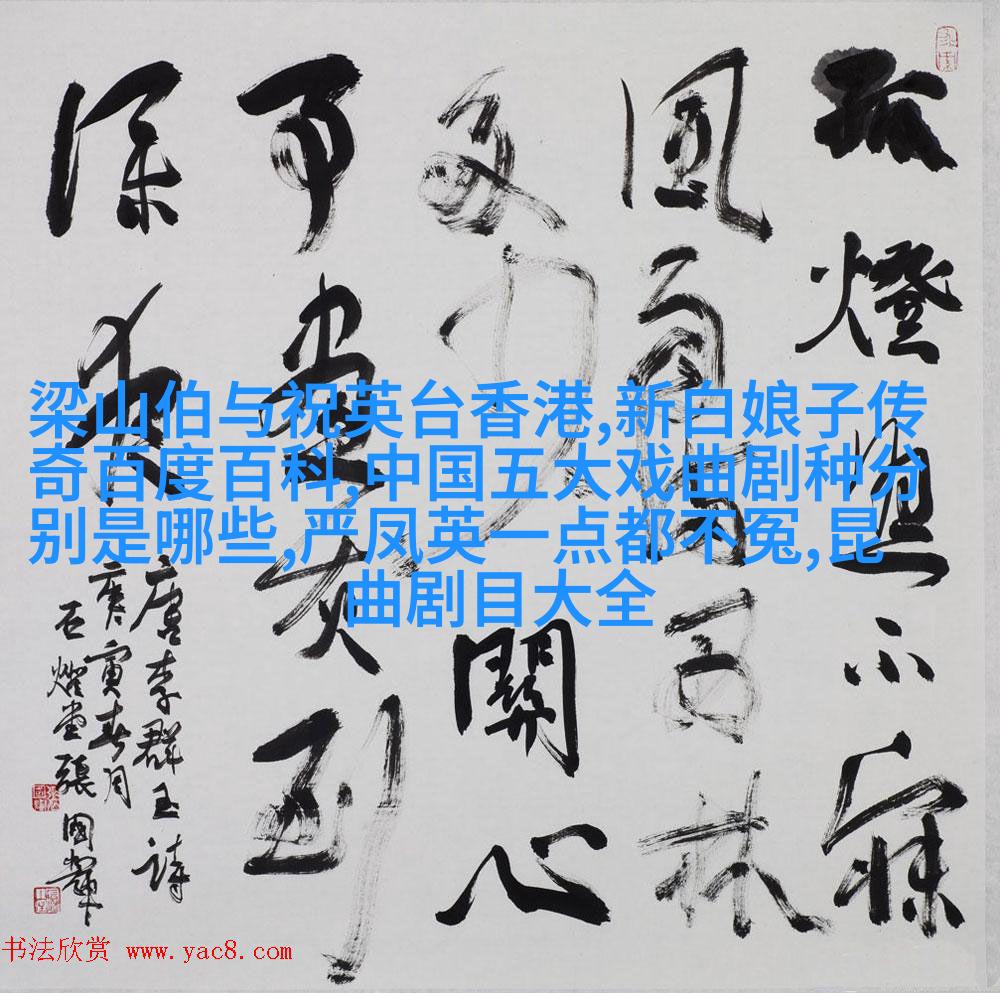 孤燈照不寐
風雨滿西林
多少關心
事書灰到
深夜
唐李群玉詩
庚寅春月
石堂張國輝
梁山伯与祝英台香港,新白娘子传
奇百度百科,中国五大戏曲剧种分
别是哪些,严凤英一点都不冤,昆
曲剧目大全
书法欣赏 www.yac8.com